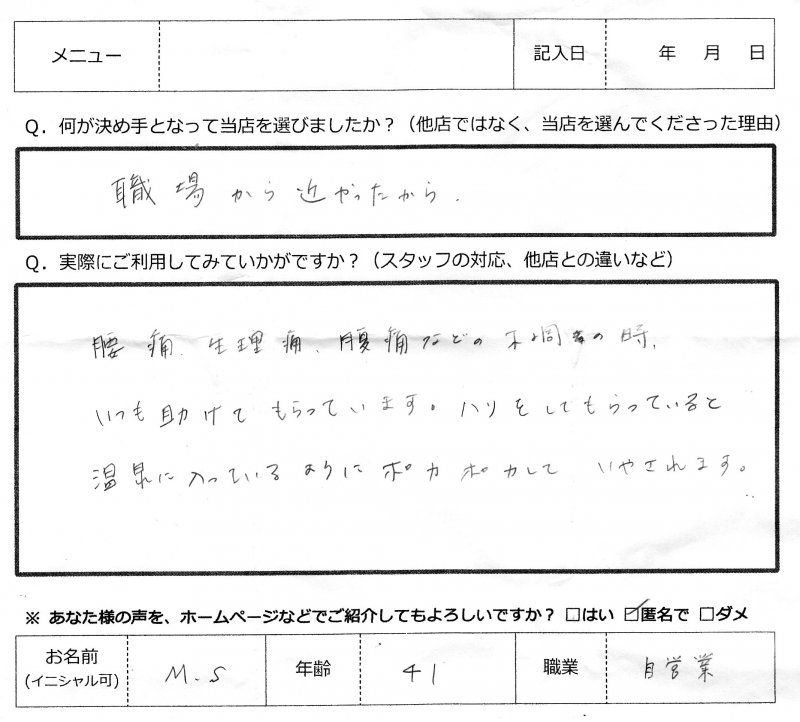 メニュー 記入日 年 月 日
Q．何が決め手となって当店を選びましたか？（他店ではなく、当店を選んでくださった理由）
職場から近かったから.
Q．実際にご利用してみていかがですか？（スタッフの対応、他店との違いなど）
腰痛、生理痛、腹痛などの不調の時、
いつも助けてもらっています。ハリをしてもらっていると
温泉に入っているようにポカポカして いやされます。
※ あなた様の声を、ホームページなどでご紹介してもよろしいですか？ □はい ☑匿名で □ダメ
お名前 M.S 年齢 41 職業 自営業
(イニシャル可)